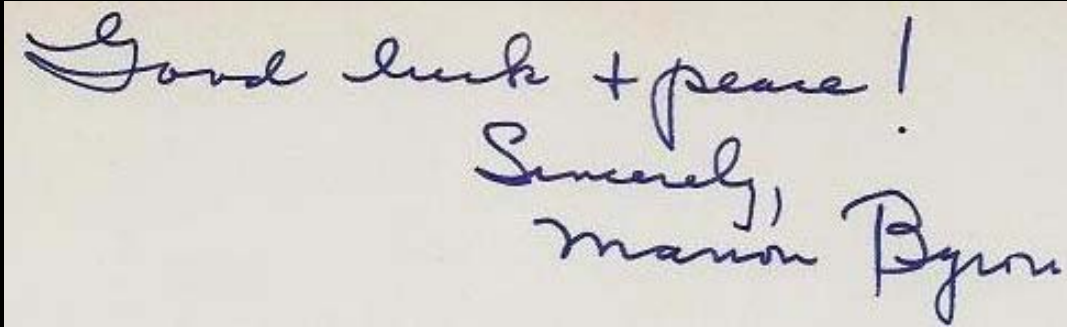 Good luck + peace!
Sincerely,
Marion Byron